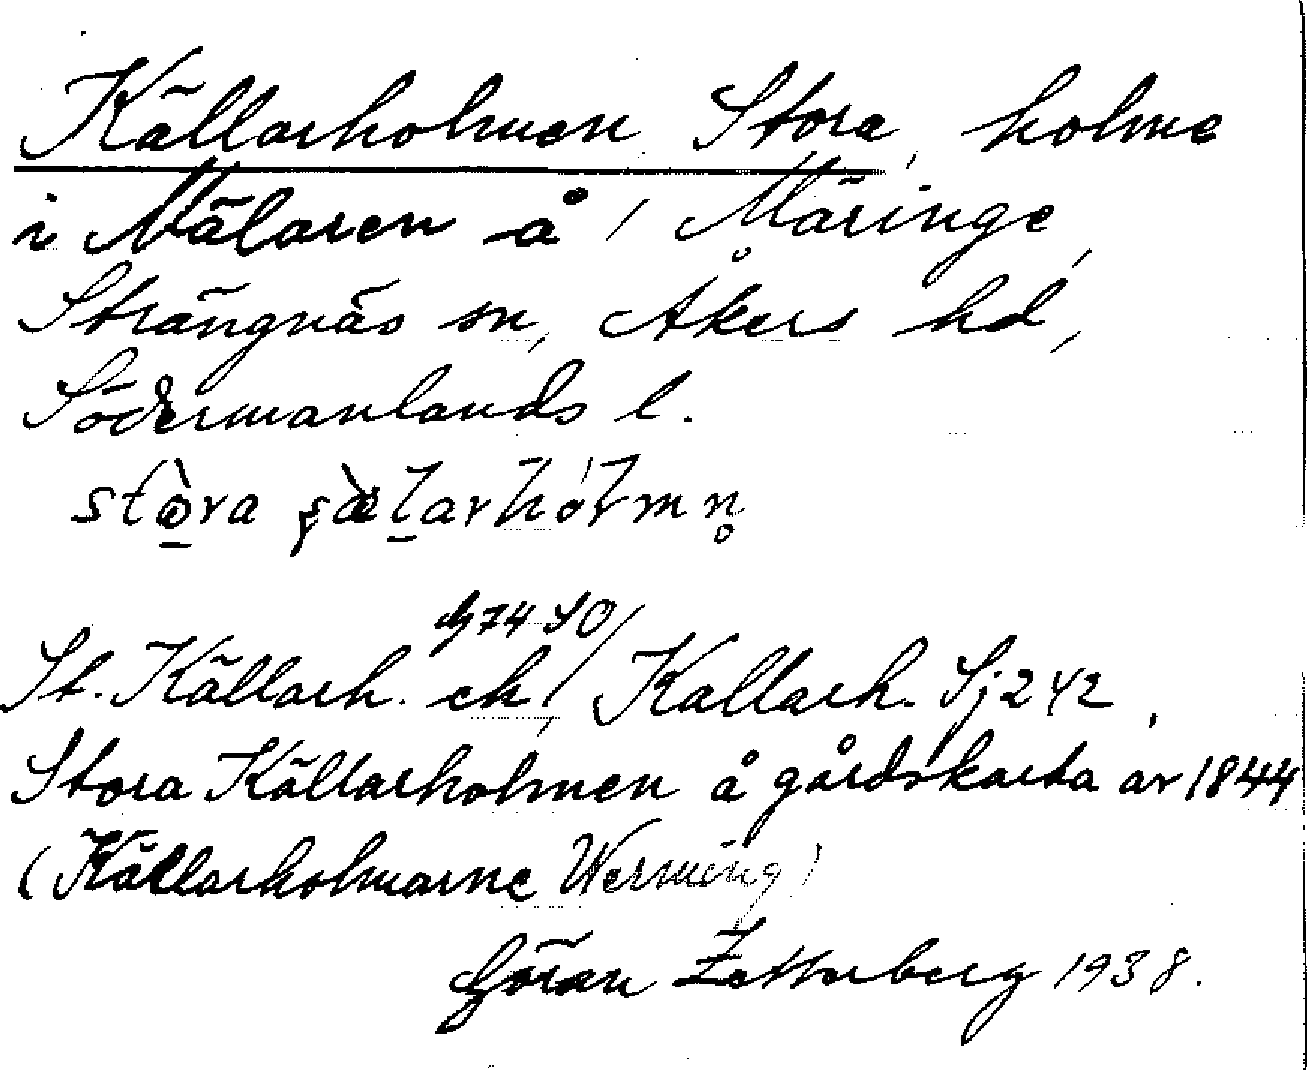 Källarholmen, Stora, holme
i Mälaren å / Märinge,
Strängnäs sn, Åkers hd,
Södermanlands l.
stò̱ra ʂæ̀ḻarhól̄mn̥
J74 SO/
St. Källarh. ek, Kallarh. Sj 242,
Stora Källarholmen å gårdskarta av 1844
(Källarholmarne Werming)
Göran Zetterberg 1938.